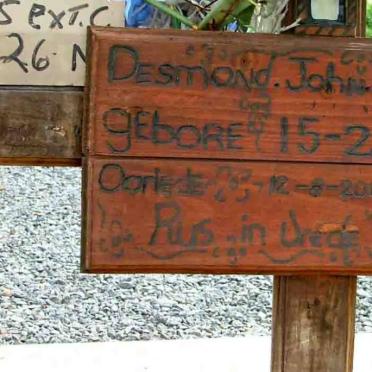 S EXT.C
26 N
DESMOND. JOHN
gEBORE 15-2
Oorlede - 12-8-20
Rus in Vrede